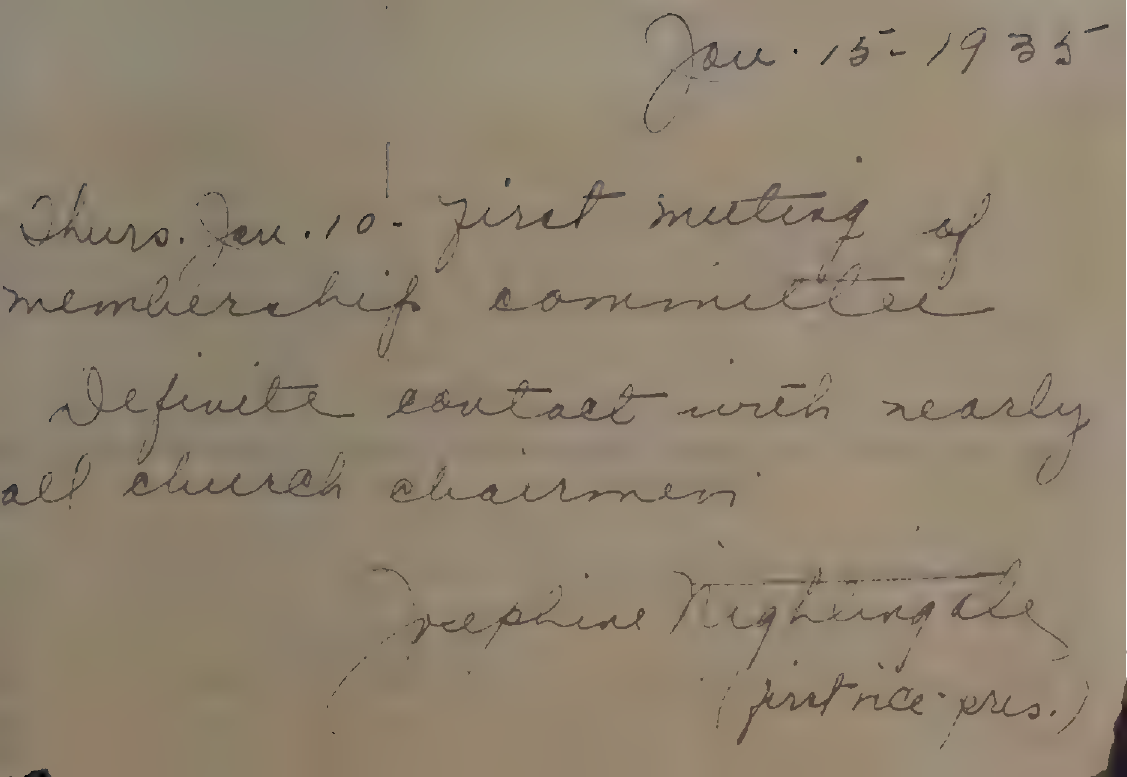 Jan. 15-1935
Thurs. Jan. 10- First meeting of
membership committee
Definite contact with nearly
all church chairmen
Josephine Nightingale
(first vice-pres.)